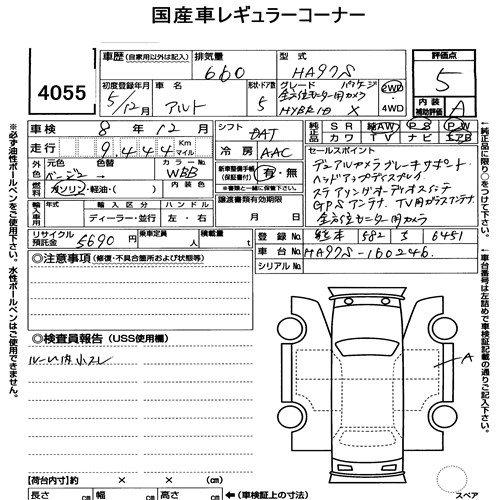 国産車レギュラーコーナー
4055
車歴 (自家用以外は記入)
排気量
660
型式
HA97S
評価点
5
初度登録年月
5/12月
車名
アルト
形状・ドア数
5
グレード パッケージ
全方位モニター用カメラ
HYBRID X
2WD
4WD
内装
補助評価
A
車検 8年 12月
走行 9,444 Km マイル
シフト
DAT
冷房
AAC
純正品 SR 純AW PS PW
純正品 カワ TV ナビ エアB
外色 元色
ベージュ
色替
カラーNo.
WBB
内装色
燃料 ガソリン・軽油・( )
新車整備手帳(保証書付) 有・無
※書類と一緒に保管して下さい。
輸入車用 年式
輸入区分
ディーラー・並行
ハンドル
左・右
譲渡書類有効期限
月 日
セールスポイント
デュアルカメラブレーキサポート
ヘッドアップディスプレイ
ステアリングオーディオスイッチ
GPSアンテナ TV用ガラスアンテナ
全方位モニター用カメラ
リサイクル預託金 5690 円
乗車定員 人
積載量 t
登録No. 熊本 582 さ 6451
車台No. HA97S-160246.
シリアルNo.
◎注意事項 (修復・不具合箇所および状態等)
◎検査員報告 (USS使用欄)
ルーム内小スレ
A
【荷台内寸】約 × × (cm)
長さ cm 幅 cm 高さ cm ←(車検証上の寸法)
スペア
※必ず油性ボールペンをご使用下さい。水性ボールペンは使用できません。